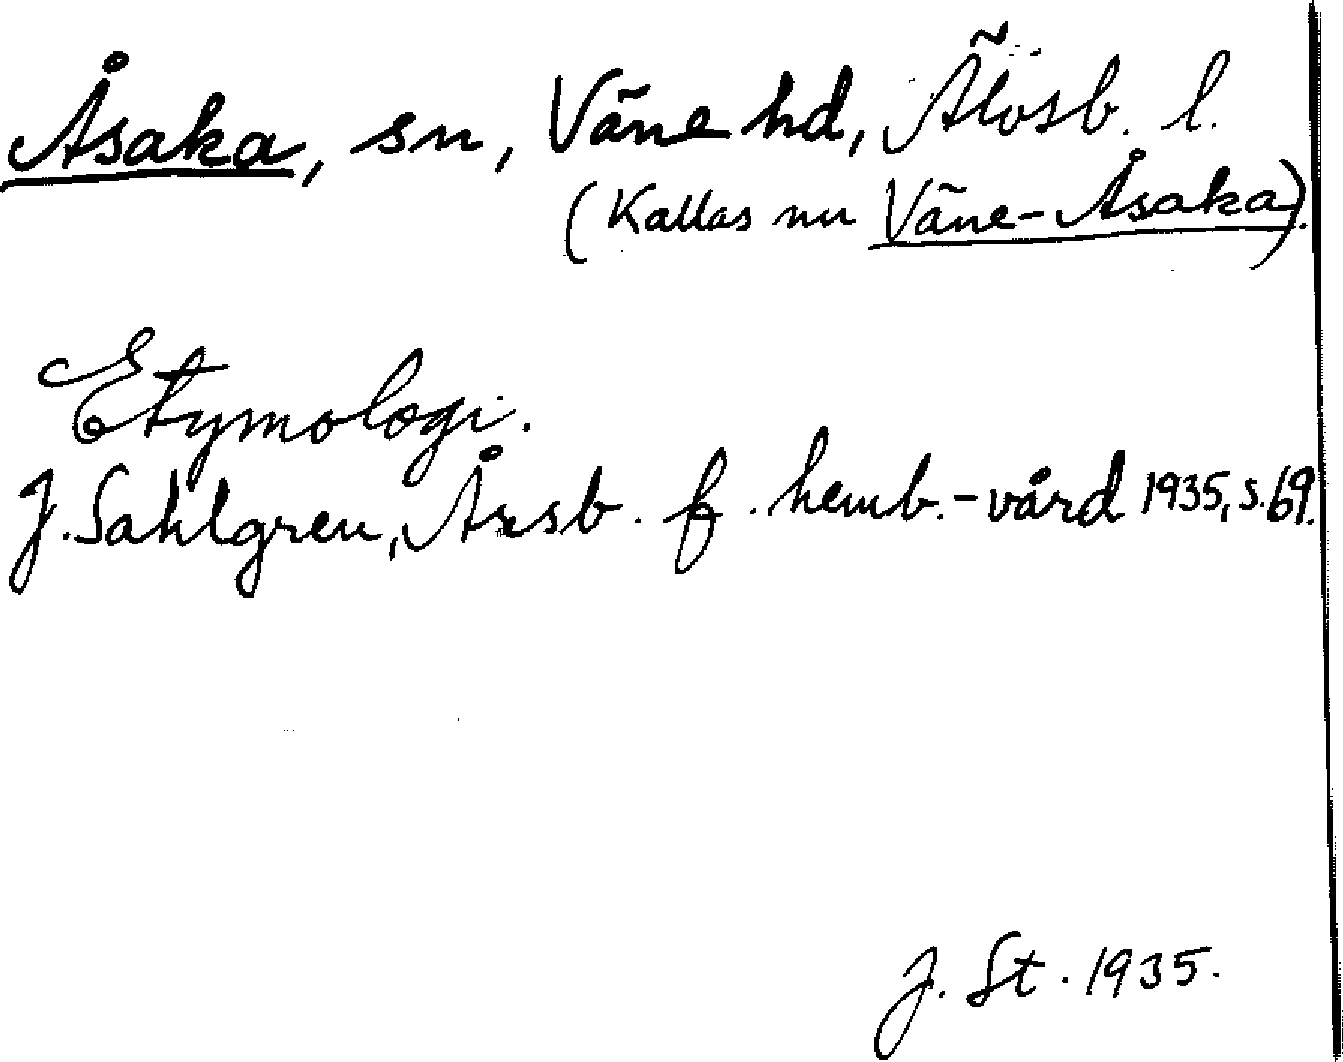 Åsaka, sn, Väne hd, Älvsb. l.
(Kallas nu Väne-Åsaka).
Etymologi.
J. Sahlgren, Årsb. f. hemb.-vård 1935, s. 69.
J. St. 1935.